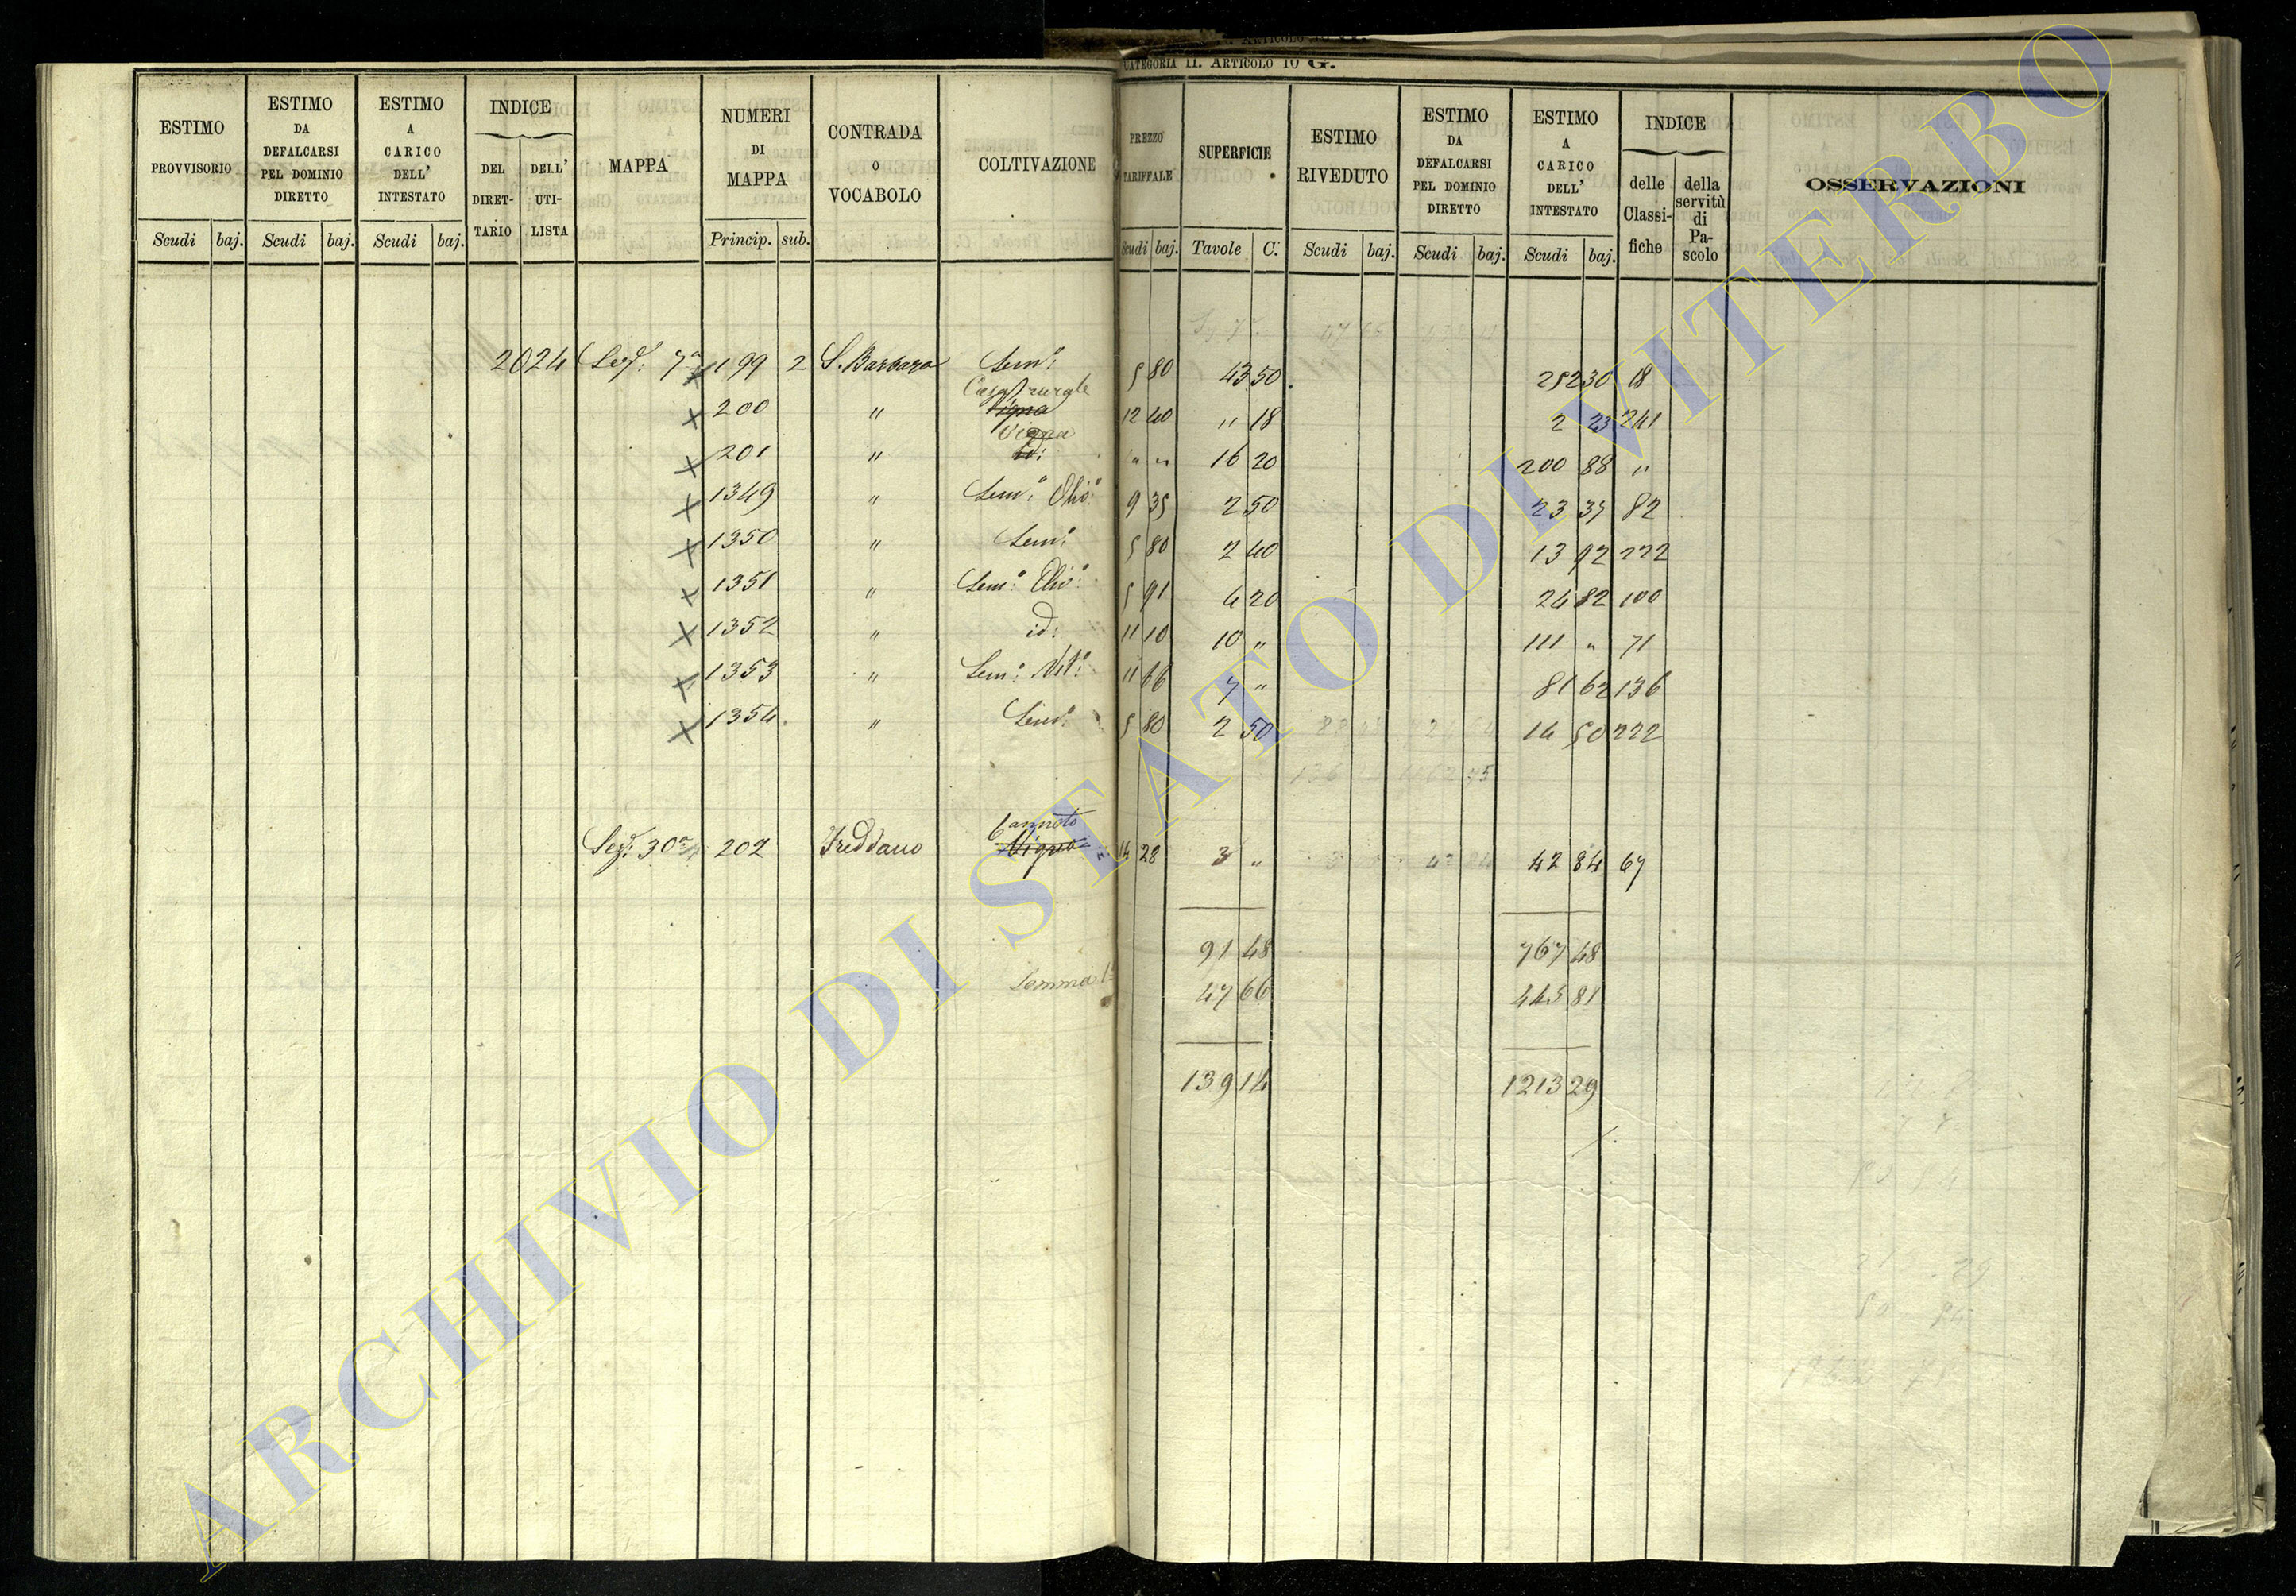 CATEGORIA II. ARTICOLO 10 G.
ESTIMO PROVVISORIO Scudi baj.
ESTIMO DA DEFALCARSI PEL DOMINIO DIRETTO Scudi baj.
ESTIMO A CARICO DELL' INTESTATO Scudi baj.
INDICE DEL DIRET-TARIO DELL' UTI-LISTA
MAPPA
NUMERI DI MAPPA Princip. sub.
CONTRADA O VOCABOLO
COLTIVAZIONE
PREZZO TARIFFALE Scudi baj.
SUPERFICIE Tavole C.
ESTIMO RIVEDUTO Scudi baj.
ESTIMO DA DEFALCARSI PEL DOMINIO DIRETTO Scudi baj.
ESTIMO A CARICO DELL' INTESTATO Scudi baj.
INDICE delle Classi-fiche della servitù di Pa-scolo
OSSERVAZIONI
2024 Sez: 7a 199 2 S. Barbara Sem: 5 80 43 50 252 30 18
Casa rurale
x 200 " Vigna 12 40 " 18 2 23 241
Vigna
x 201 " id: " " 16 20 200 88 "
x 1349 " Sem: Olio: 9 35 2 50 23 37 82
x 1350 " Sem: 5 80 2 40 13 92 222
x 1351 " Sem: Olio: 5 91 4 20 24 82 100
x 1352 " id: 11 10 10 " 111 " 71
x 1353 " Sem: Vit: 11 66 7 " 81 62 136
x 1354 " Sem: 5 80 2 50 14 50 222
Canneto
Sez: 30a 202 Freddano Vigna 14 28 3 " 42 84 67
91 48 767 48
Somma 1a 47 66 445 81
139 14 1213 29
ARCHIVIO DI STATO DI VITERBO